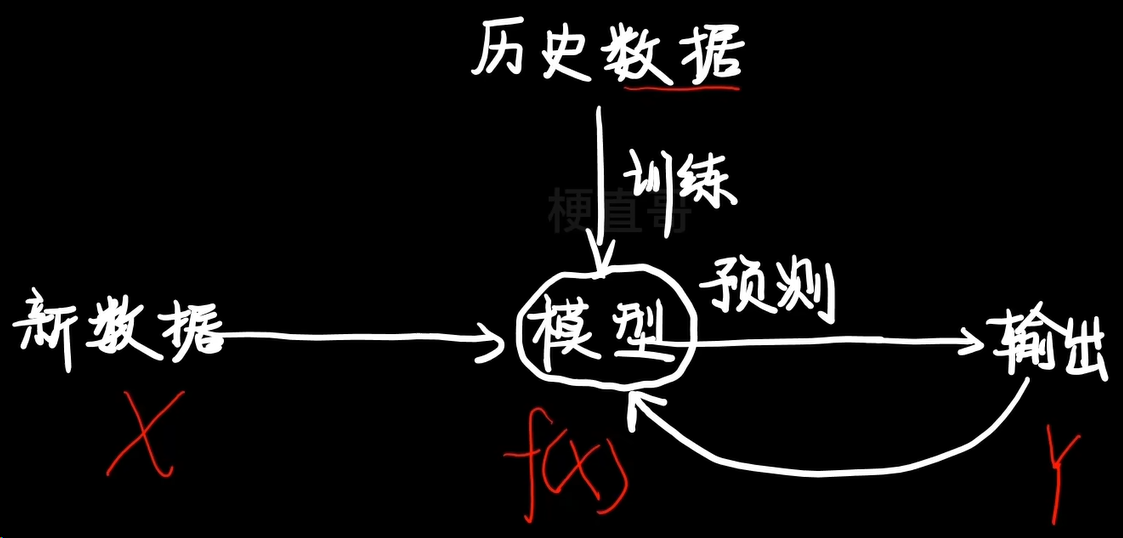 历史数据
训练
梗直哥
预测
新数据
模型
输出
X
f(x)
Y